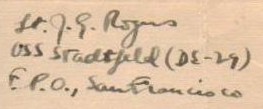 Lt. J. G. Rogers
USS Stadtfeld (DE-29)
F.P.O., San Francisco